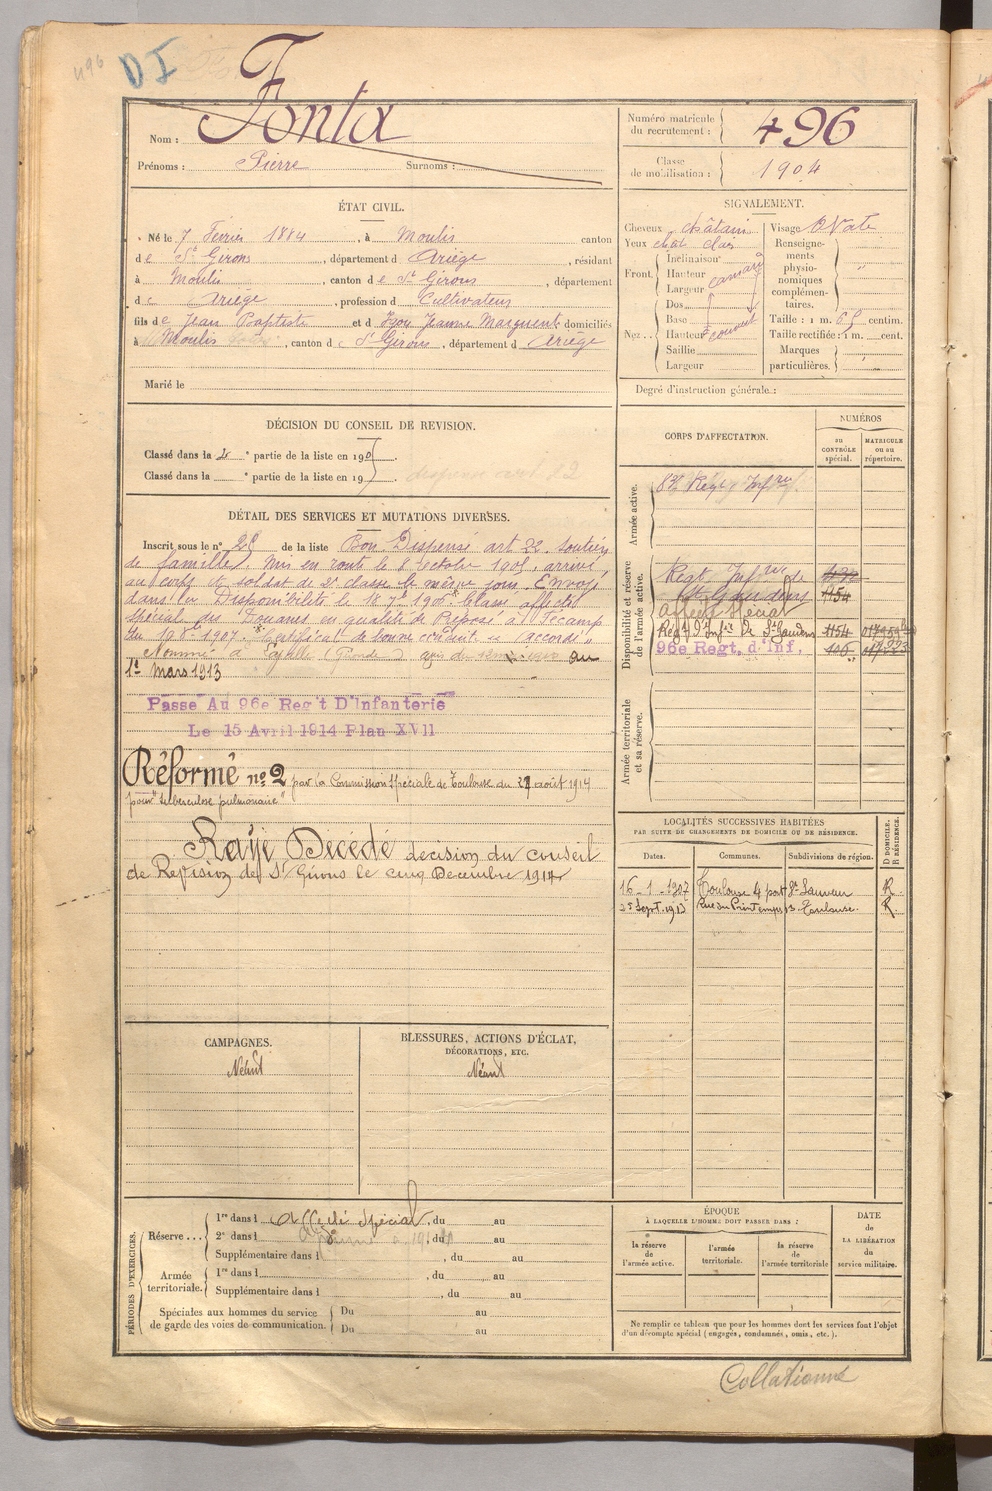 496
DI
Fonta
Nom :
Prénoms : Pierre Surnoms :
Numéro matricule
du recrutement : 496
Classe
de mobilisation : 1904
ÉTAT CIVIL.
Né le 7 Février 1884, à Moulis canton
de St Girons, département d Ariège, résidant
à Moulis, canton de St Girons, département
d Ariège, profession d Cultivateur
fils de Jean Baptiste et d Jeanne Marguerite domiciliés
à Moulis, canton d St Girons, département d Ariège
Marié le
SIGNALEMENT.
Cheveux châtain
Yeux chât clair
Front. Inclinaison
Hauteur
Largeur
Nez. Dos
Base
Hauteur
Saillie
Largeur
Visage Ovale
Renseigne-
ments
physio-
nomiques
complémen-
taires. "
Taille : 1 m. 65 centim.
Taille rectifiée : 1 m. cent.
Marques
particulières. "
Degré d'instruction générale :
DÉCISION DU CONSEIL DE REVISION.
Classé dans la 2e partie de la liste en 190
Classé dans la e partie de la liste en 19
DÉTAIL DES SERVICES ET MUTATIONS DIVERSES.
Inscrit sous le n° 29 de la liste Bon Dispensé art 22. Soutien
de famille. Mis en route le 8 octobre 1905, arrivé
au corps et soldat de 2e classe le même jour. Envoyé
dans la Disponibilité le 18 7bre 1906. Classé affecté
spécial des Douanes en qualité de Préposé à Fécamp
du 1907. Certificat de bonne conduite "accordé"
Nommé à (Gironde) au
1er mars 1913
Passé Au 96e Reg't D'Infanterie
Le 15 Avril 1914 Plan XVII
Réformé n° 2 par la Commission spéciale de Toulouse du août 1914
pour "tuberculose pulmonaire"
Rayé Décédé décision du conseil
de Revision de St Girons le cinq Décembre 1914
CORPS D'AFFECTATION.
NUMÉROS
au
CONTRÔLE
spécial.
MATRICULE
ou au
répertoire.
Armée active.
Régt Infrie
Disponibilité et réserve
de l'armée active.
Régt Infrie de
St Gaudens 1154
affecté spécial
Régt d'Infie de St Gaudens 1154
96e Regt. d'Inf.
Armée territoriale
et sa réserve.
LOCALITÉS SUCCESSIVES HABITÉES
PAR SUITE DE CHANGEMENTS DE DOMICILE OU DE RÉSIDENCE.
Dates. Communes. Subdivisions de région. D DOMICILE. R RÉSIDENCE.
16-1-1907 Toulouse 4 port St Sauveur R.
Sept. 1913 Rue du Printemps 13 Toulouse. R.
CAMPAGNES.
Néant
BLESSURES, ACTIONS D'ÉCLAT,
DÉCORATIONS, ETC.
Néant
PÉRIODES D'EXERCICES.
Réserve... 1re dans l affecté spécial, du au
2e dans l du au
Supplémentaire dans l , du au
Armée
territoriale. 1re dans l , du au
Supplémentaire dans l , du au
Spéciales aux hommes du service
de garde des voies de communication. Du au
Du au
ÉPOQUE
À LAQUELLE L'HOMME DOIT PASSER DANS :
la réserve
de
l'armée active.
l'armée
territoriale.
la réserve
de
l'armée territoriale
DATE
de
LA LIBÉRATION
du
service militaire.
Ne remplir ce tableau que pour les hommes dont les services font l'objet
d'un décompte spécial (engagés, condamnés, omis, etc.).
Collationné